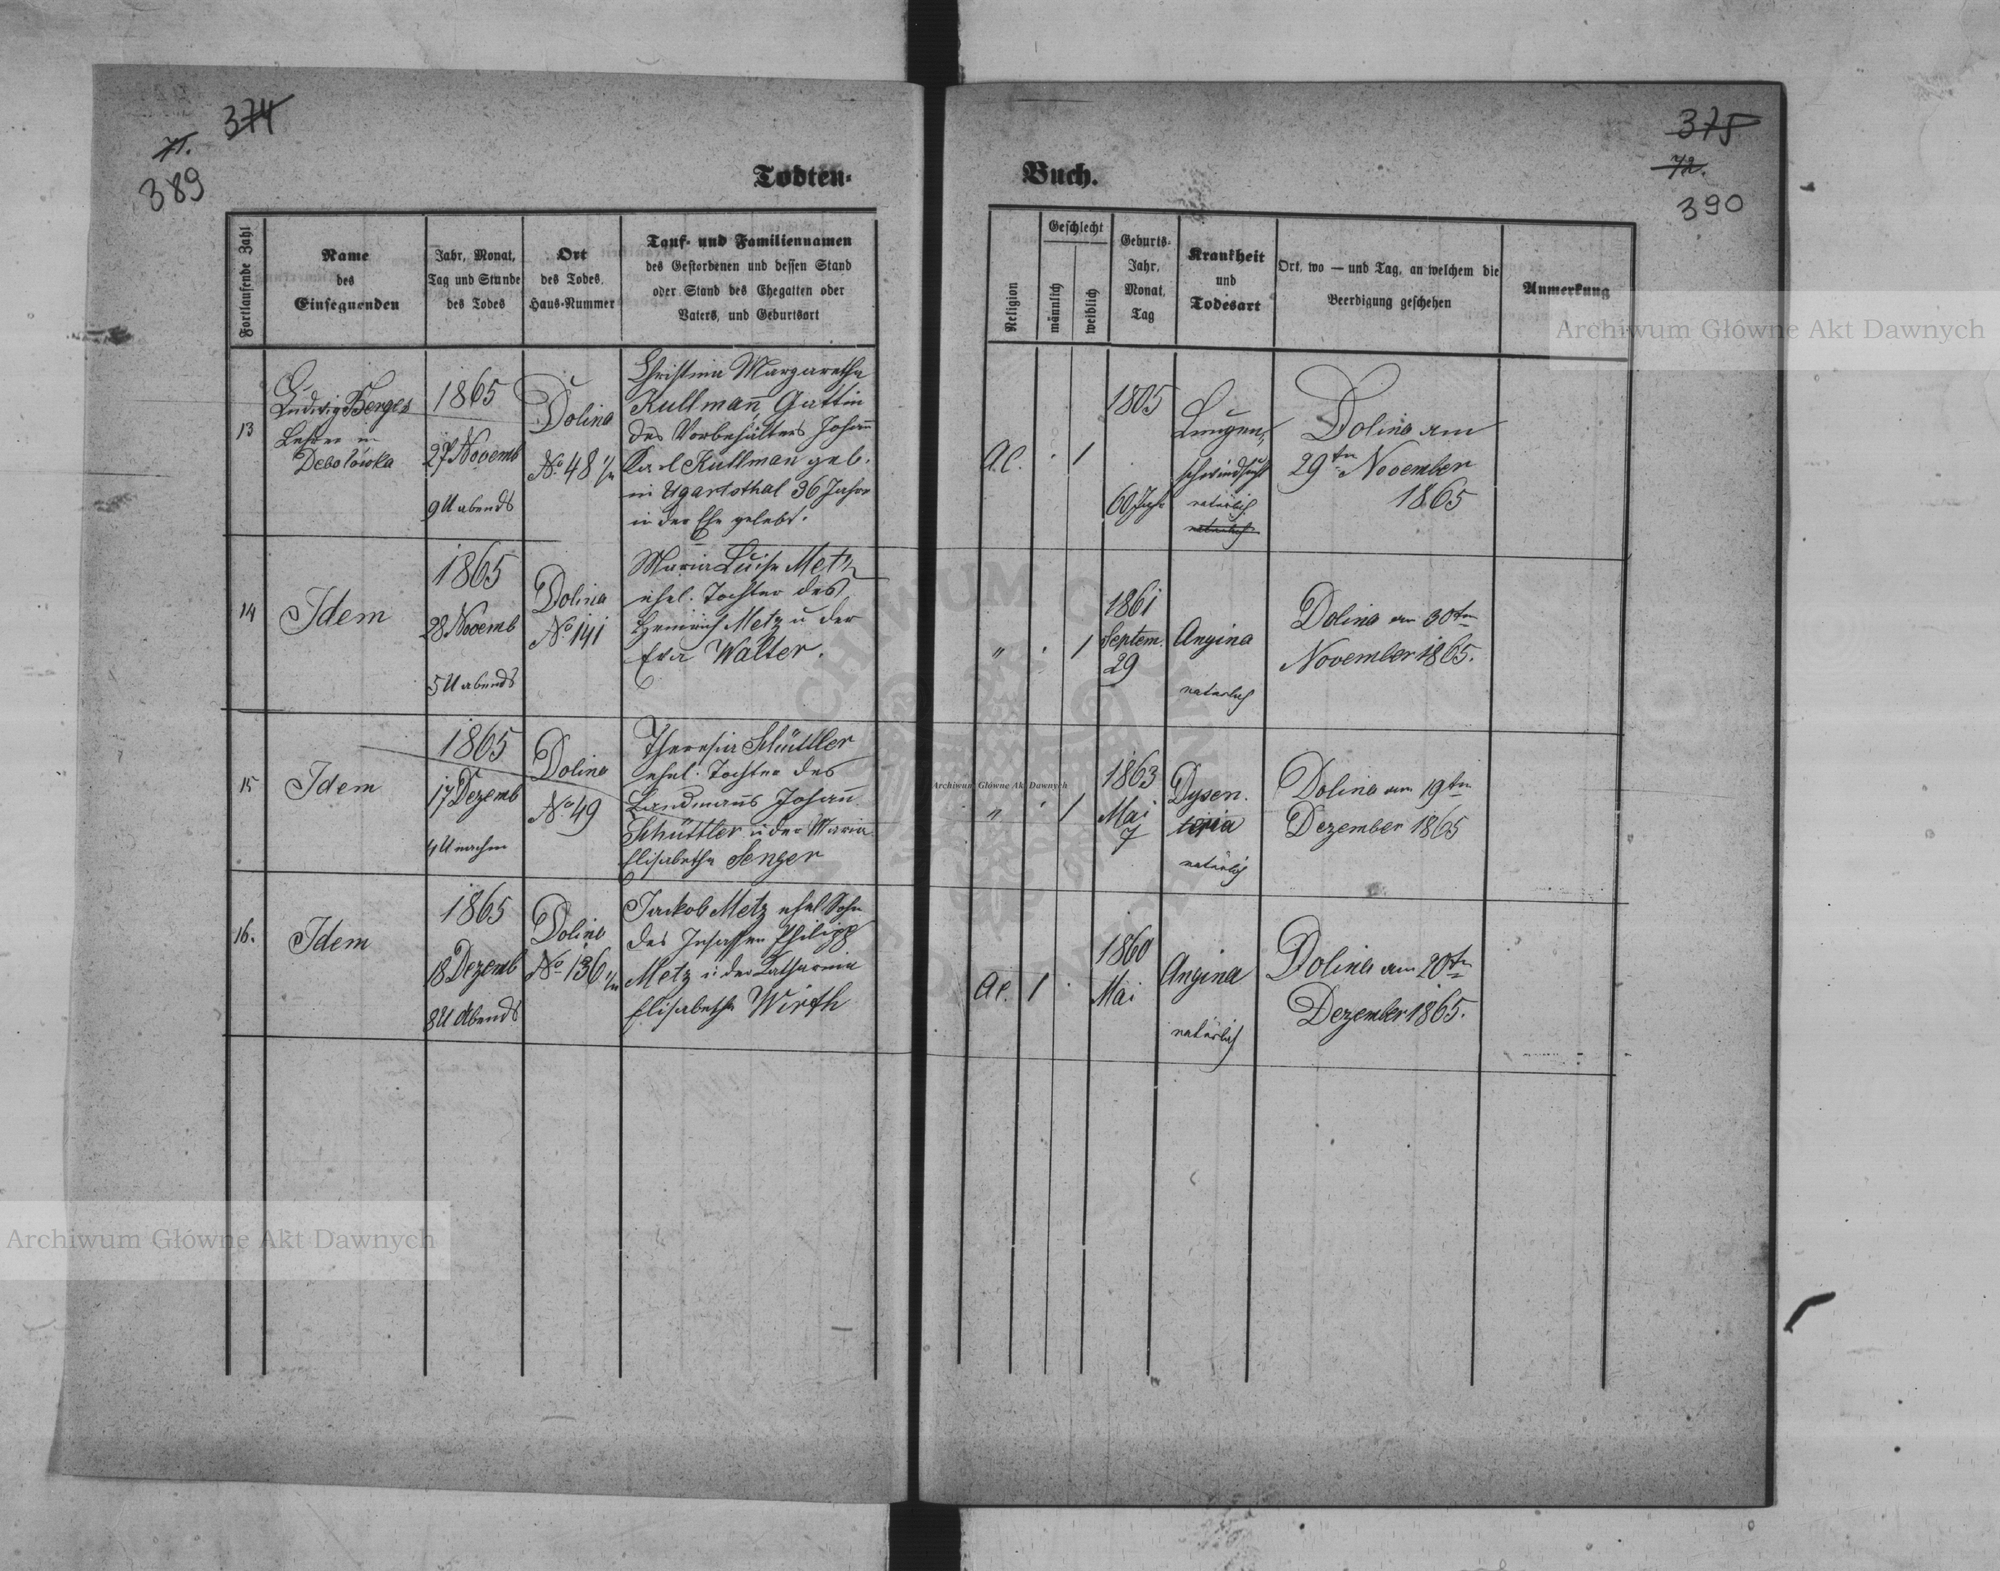 374
71.
389
Todten-
Fortlaufende Zahl
Name
des
Einsegnenden
Jahr, Monat,
Tag und Stunde
des Todes
Ort
des Todes,
Haus-Nummer
Tauf- und Familiennamen
des Gestorbenen und dessen Stand
oder Stand des Ehegatten oder
Vaters, und Geburtsort
13
Ludwig Berges
Lehrer in
Debolówka
1865
27 Novemb
9 U abends
Dolina
No 48
Christina Margaretha
Kullmañ Gattin
des Vorbehälters Johañ
Karl Kullman geb.
in Ugartsthal 36 Jahre
in der Ehe gelebt.
14
Idem
1865
28 Novemb
5 U abends
Dolina
No 141
Maria Luise Metz
ehel. Tochter des
Heinrich Metz u der
Eva Walter.
15
Idem
1865
17 Dezemb
4 U nachm
Dolina
No 49
Theresia Schüttler
ehel. Tochter des
Landmañs Johañ
Schüttler u der Maria
Elisabetha Senger
16.
Idem
1865
18 Dezemb
8 U Abends
Dolina
No 136
Jackob Metz ehel Sohn
des Insassen Philipp
Metz u der Catharina
Elisabetha Wirth
375
72.
390
Buch.
Religion
Geschlecht
männlich
weiblich
Geburts-
Jahr,
Monat,
Tag
Krankheit
und
Todesart
Ort, wo — und Tag, an welchem die
Beerdigung geschehen
Anmerkung
A.C.
1
1805
60 Jahr
Lungen-
schwindsucht
natürlich
natürlich
Dolina am
29ten November
1865
"
1
1861
Septem.
29
Angina
natürlich
Dolina am 30ten
November 1865.
"
1
1863
Mai
7
Dysen.
teria
natürlich
Dolina am 19ten
Dezember 1865
A.C.
1
1860
Mai
Angina
natürlich
Dolina am 20ten
Dezember 1865.
Archiwum Główne Akt Dawnych
Archiwum Główne Akt Dawnych
Archiwum Główne Akt Dawnych